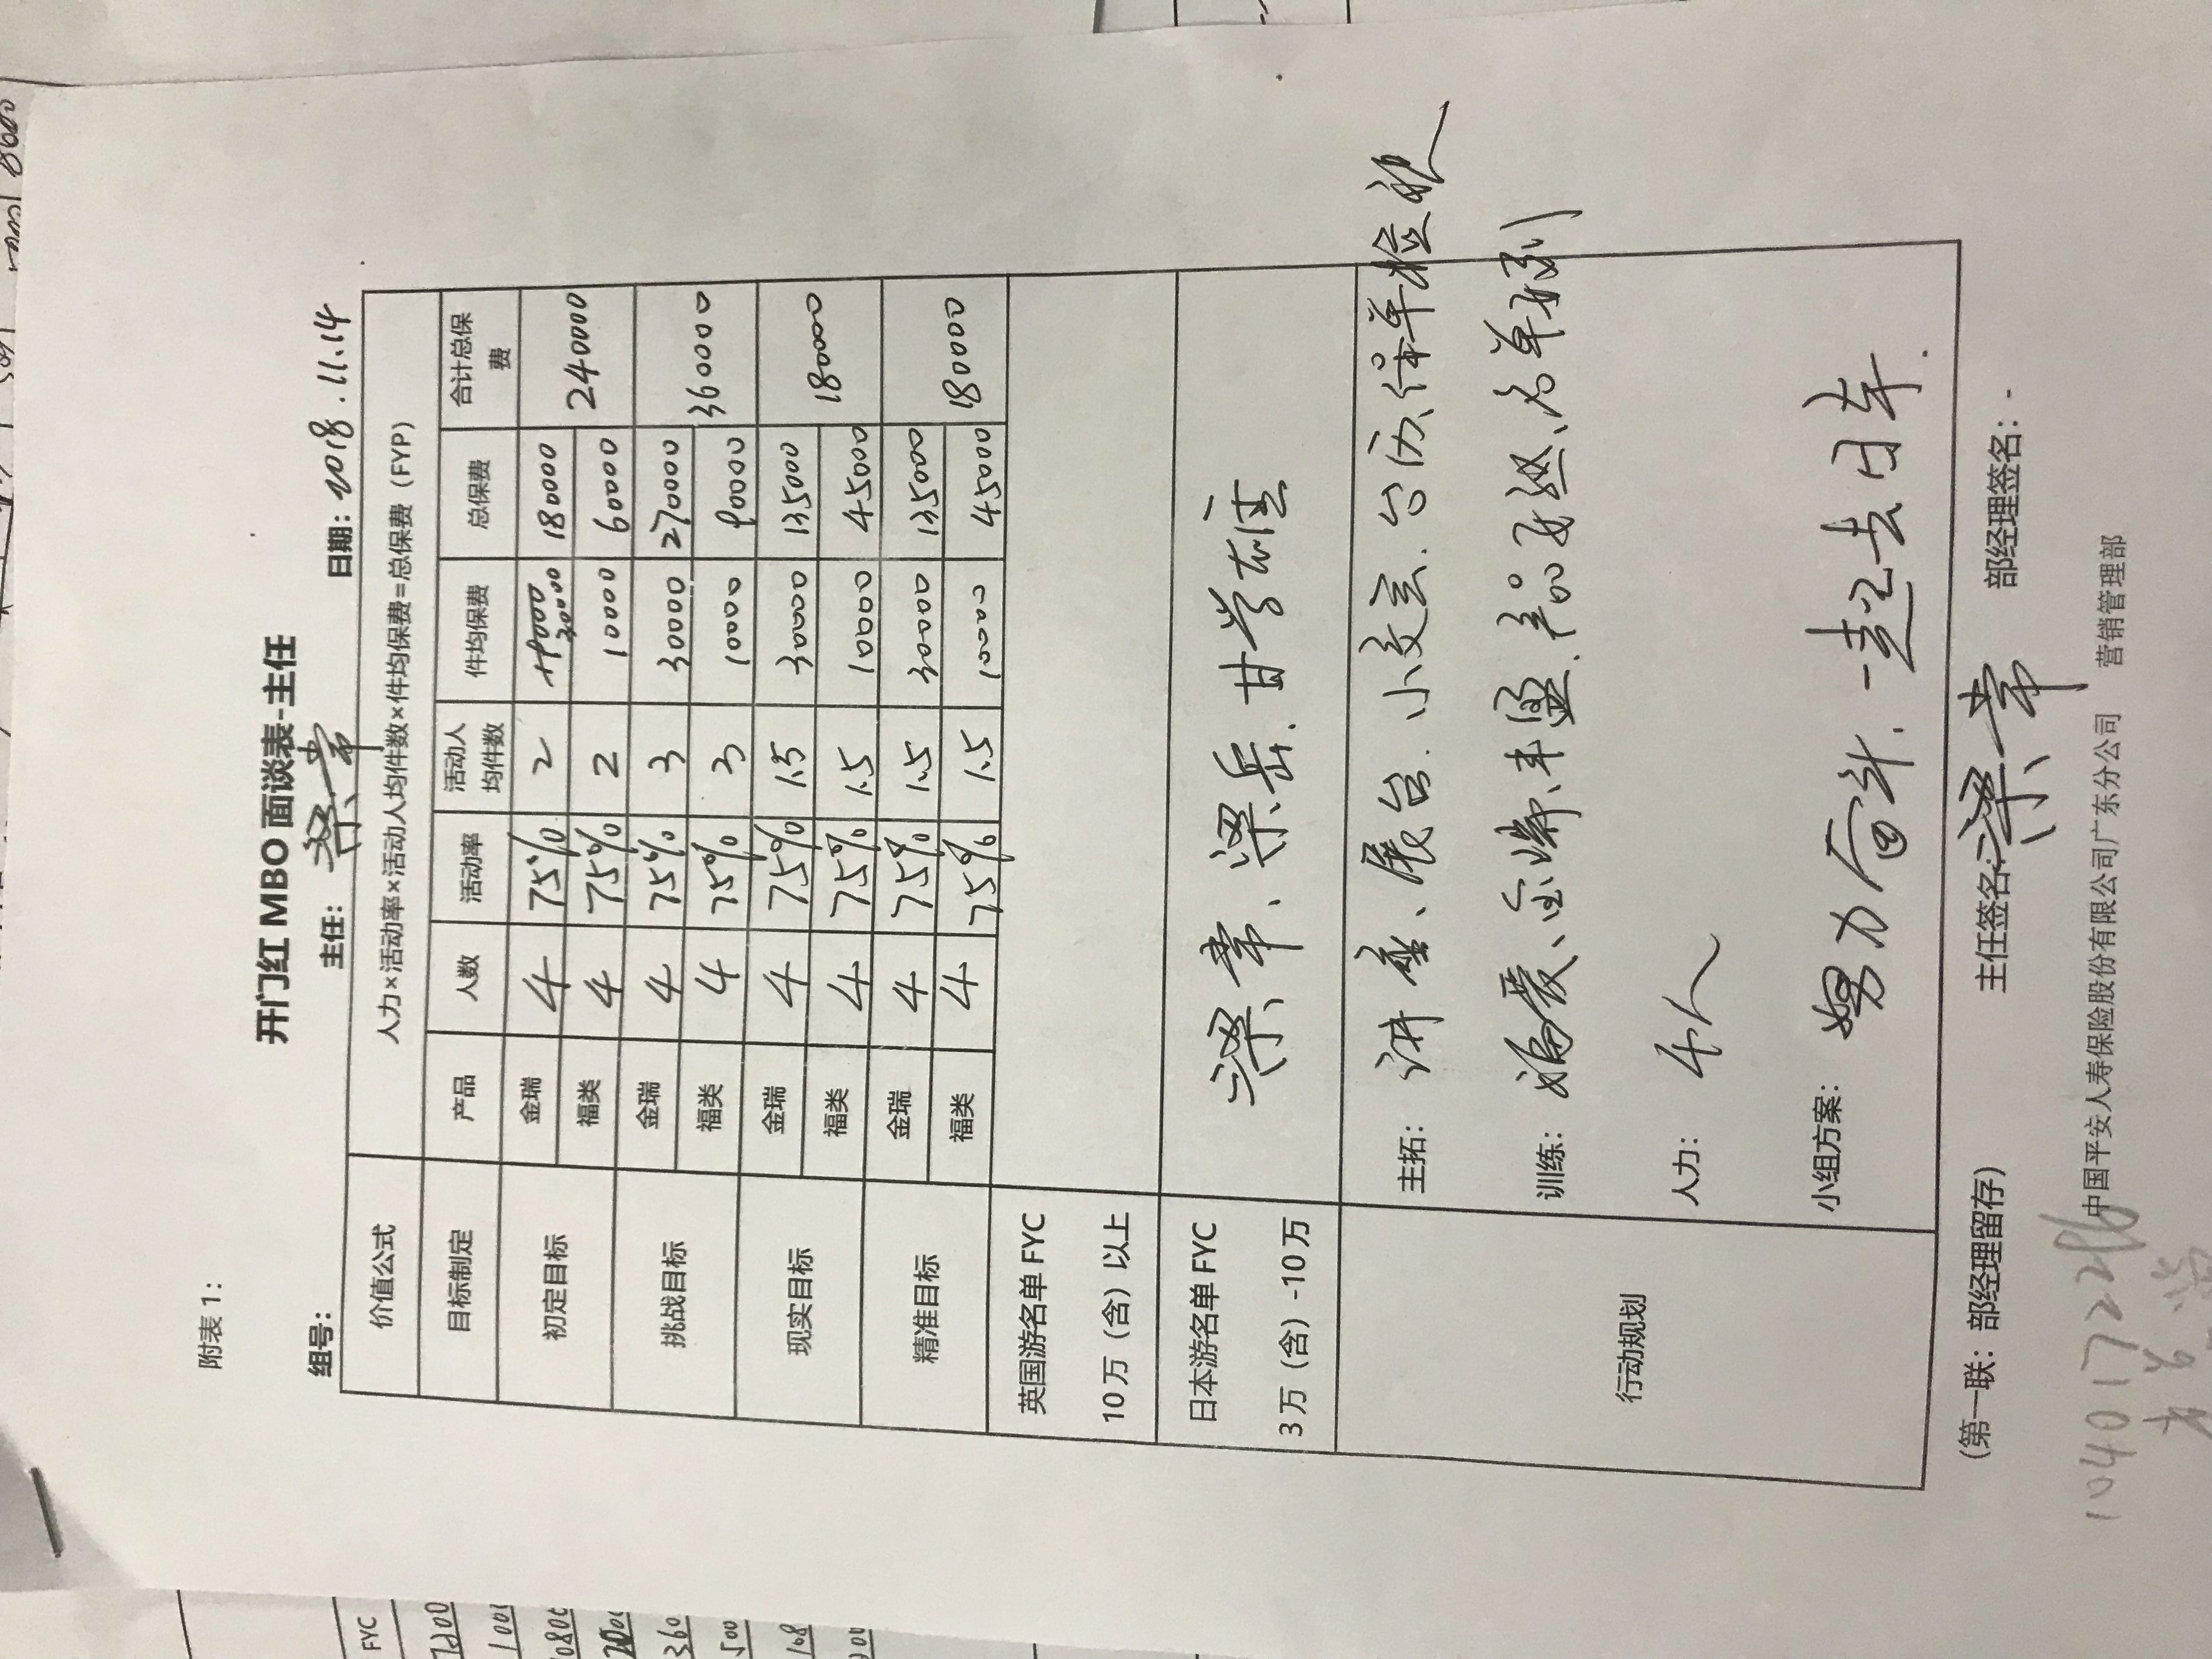 附表 1:
开门红 MBO 面谈表-主任
组号: 主任: 梁常 日期: 2018.11.14
价值公式 人力×活动率×活动人均件数×件均保费=总保费（FYP）
目标制定 产品 人数 活动率 活动人均件数 件均保费 总保费 合计总保费
初定目标 金瑞 4 75% 2 30000 180000 240000
福类 4 75% 2 10000 60000
挑战目标 金瑞 4 75% 3 30000 270000 360000
福类 4 75% 3 10000 90000
现实目标 金瑞 4 75% 1.5 30000 135000 180000
福类 4 75% 1.5 10000 45000
精准目标 金瑞 4 75% 1.5 30000 135000 180000
福类 4 75% 1.5 10000 45000
英国游名单 FYC
10 万（含）以上
日本游名单 FYC
3 万（含）-10 万
梁常、梁岳、甘学雄
行动规划
主拓: 讲座、展台、小交会、台历、保单检视
训练: 福爱、金瑞、丰盈、产品 名单梳理
人力: 4人
小组方案: 努力奋斗,一起去日本.
（第一联: 部经理留存） 主任签名: 梁常 部经理签名:
中国平安人寿保险股份有限公司广东分公司 营销管理部
FYC